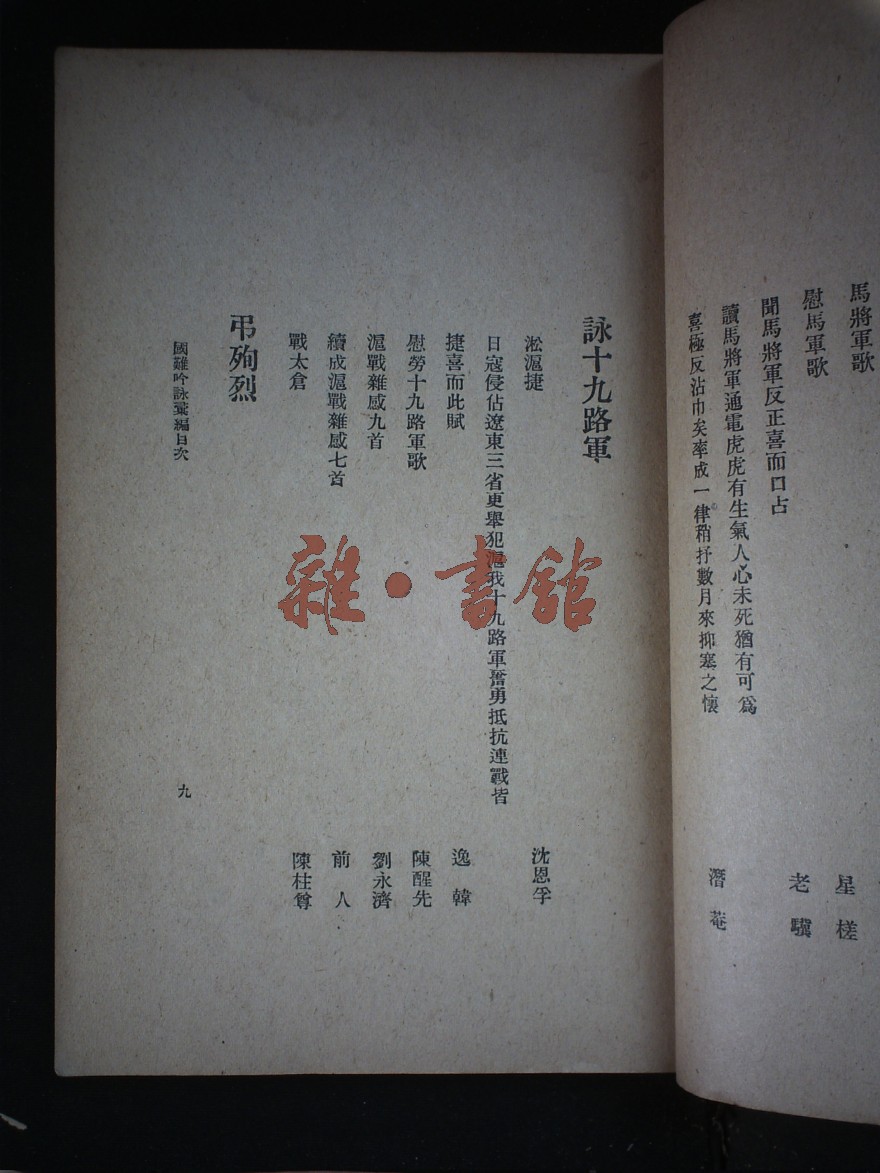 馬將軍歌
星槎
慰馬軍歌
老驥
聞馬將軍反正喜而口占
讀馬將軍通電虎虎有生氣人心未死猶有可爲
喜極反沾巾矣率成一律稍抒數月來抑塞之懷
潛菴
詠十九路軍
淞滬捷
沈恩孚
日寇侵佔遼東三省更舉犯滬我十九路軍奮勇抵抗連戰皆
捷喜而此賦
逸韓
慰勞十九路軍歌
陳醒先
滬戰雜感九首
劉永濟
續成滬戰雜感七首
前人
戰太倉
陳柱尊
弔殉烈
國難吟詠彙編目次
九
雜·書館